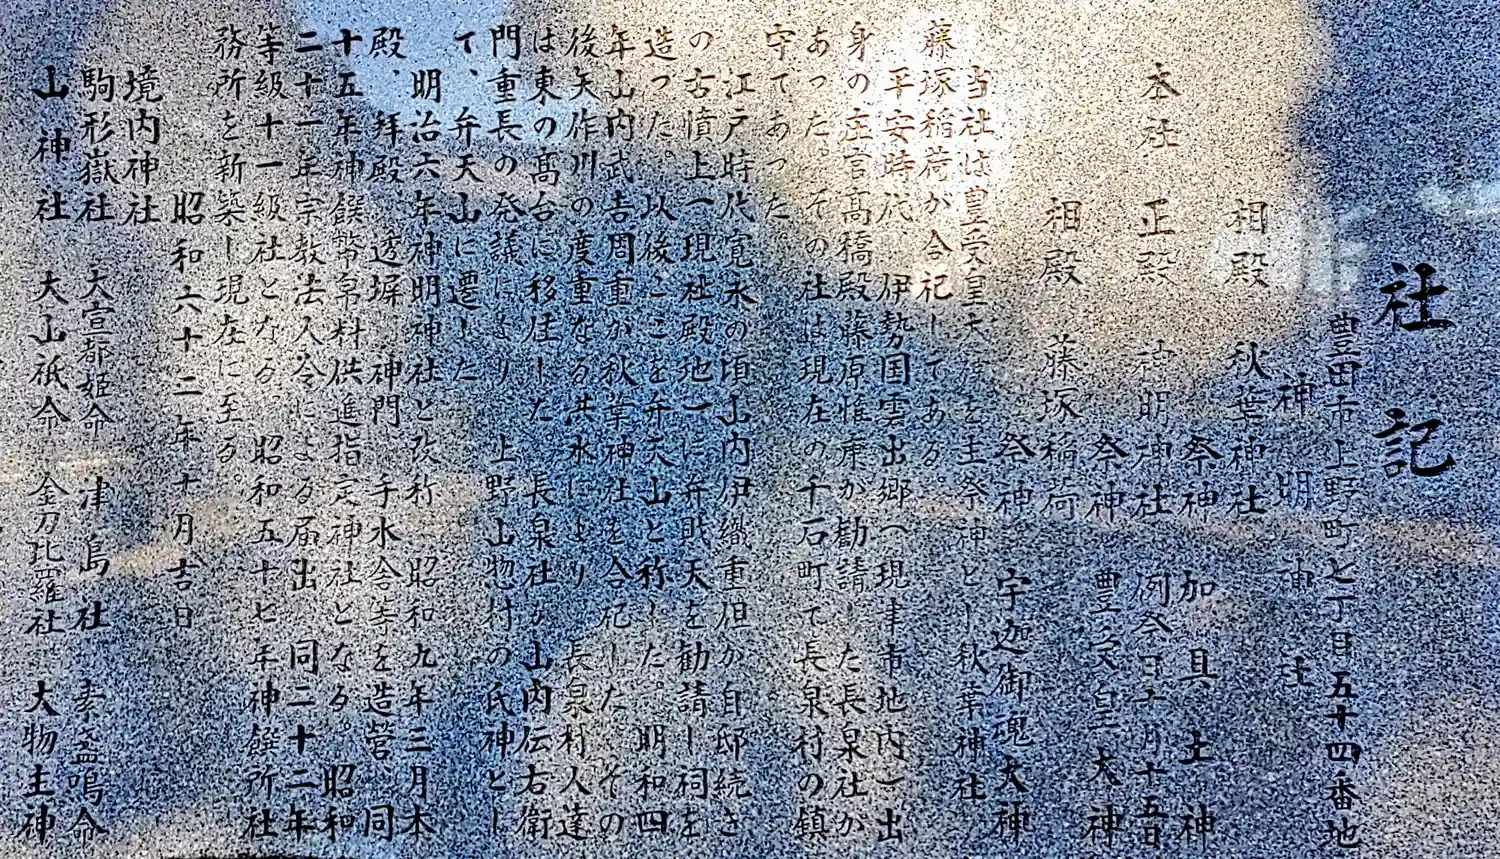 社記
豊田市上野町七丁目五十四番地
神明神社
相殿 秋葉神社 祭神 加具土神
本社 正殿 神明神社 例祭日十月十五日
祭神 豊受皇大神
相殿 藤塚稲荷 祭神 宇迦御魂大神
当社は豊受皇大神を主祭神とし秋葉神社
藤塚稲荷が合祀してある。
平安時代、伊勢国雲出郷(現津市地内)出
身の庄官髙橋殿藤原惟康が勧請した長泉社が
あった。その社は現在の千石町で長泉村の鎮
守であった。
江戸時代寛永の頃山内伊織重但が自邸続き
の古墳上(現社殿地)に弁戝天を勧請し祠を
造った。以後ここを弁天山と称した。明和四
年山内武吉周重が秋葉神社を合祀した。その
後矢作川の度重なる洪水により、長泉村人達
は東の髙台に移住した。長泉社が山内伝右衛
門重長の発議により、上野山惣村の氏神とし
て、弁天山に遷した。
明治六年神明神社と改称、昭和九年三月本
殿、拝殿、透塀、神門、手水舎等を造営、同
十五年神饌幣帛料供進指定神社となる。昭和
二十一年宗教法人令による届出、同二十二年
等級十一級社となる。昭和五十七年神饌所社
務所を新築し現在に至る。
昭和六十二年十月吉日
境内神社
駒形嶽社 大宣都姫命 津島社 素盞嗚命
山神社 大山祇命 金刀比羅社 大物主神